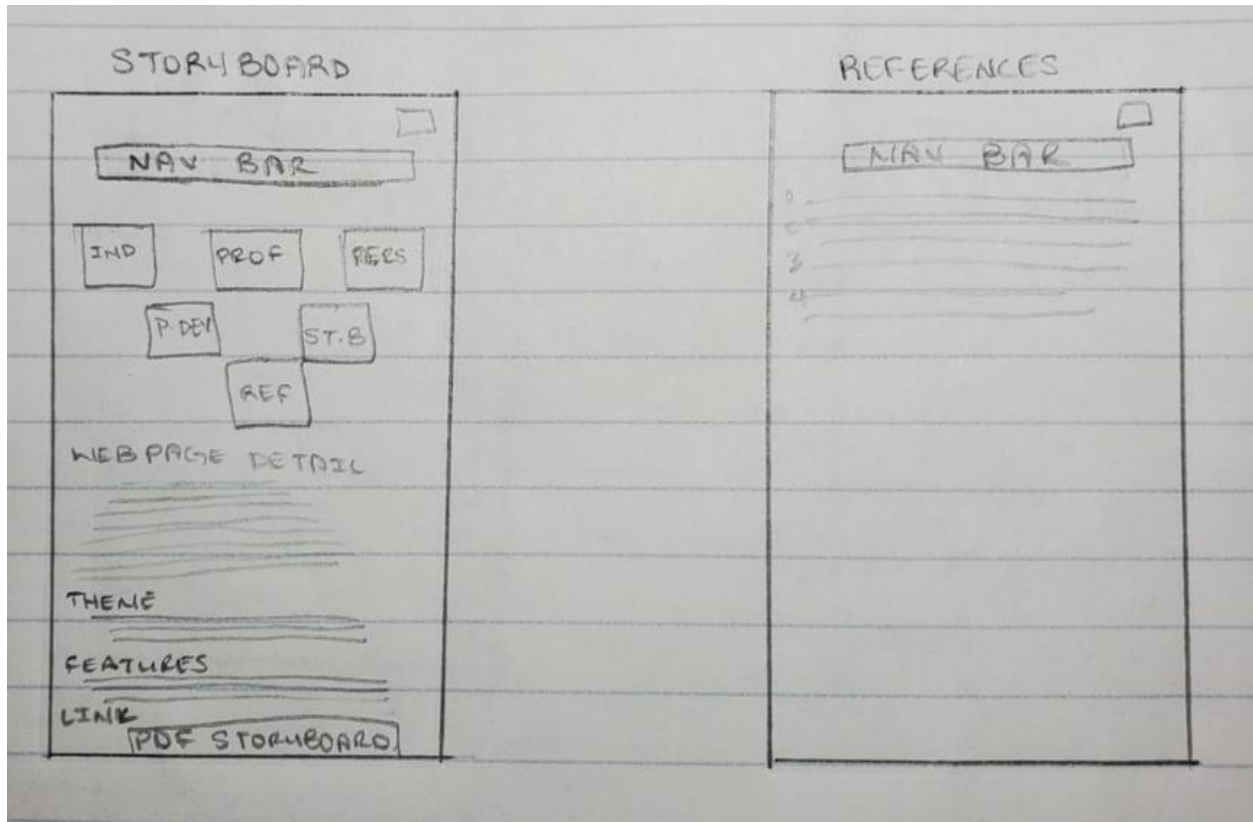 STORYBOARD
NAV BAR
IND PROF PERS
P. DEV ST.B
REF
WEBPAGE DETAIL
THEME
FEATURES
LINK
PDF STORYBOARD
REFERENCES
NAV BAR
3
4